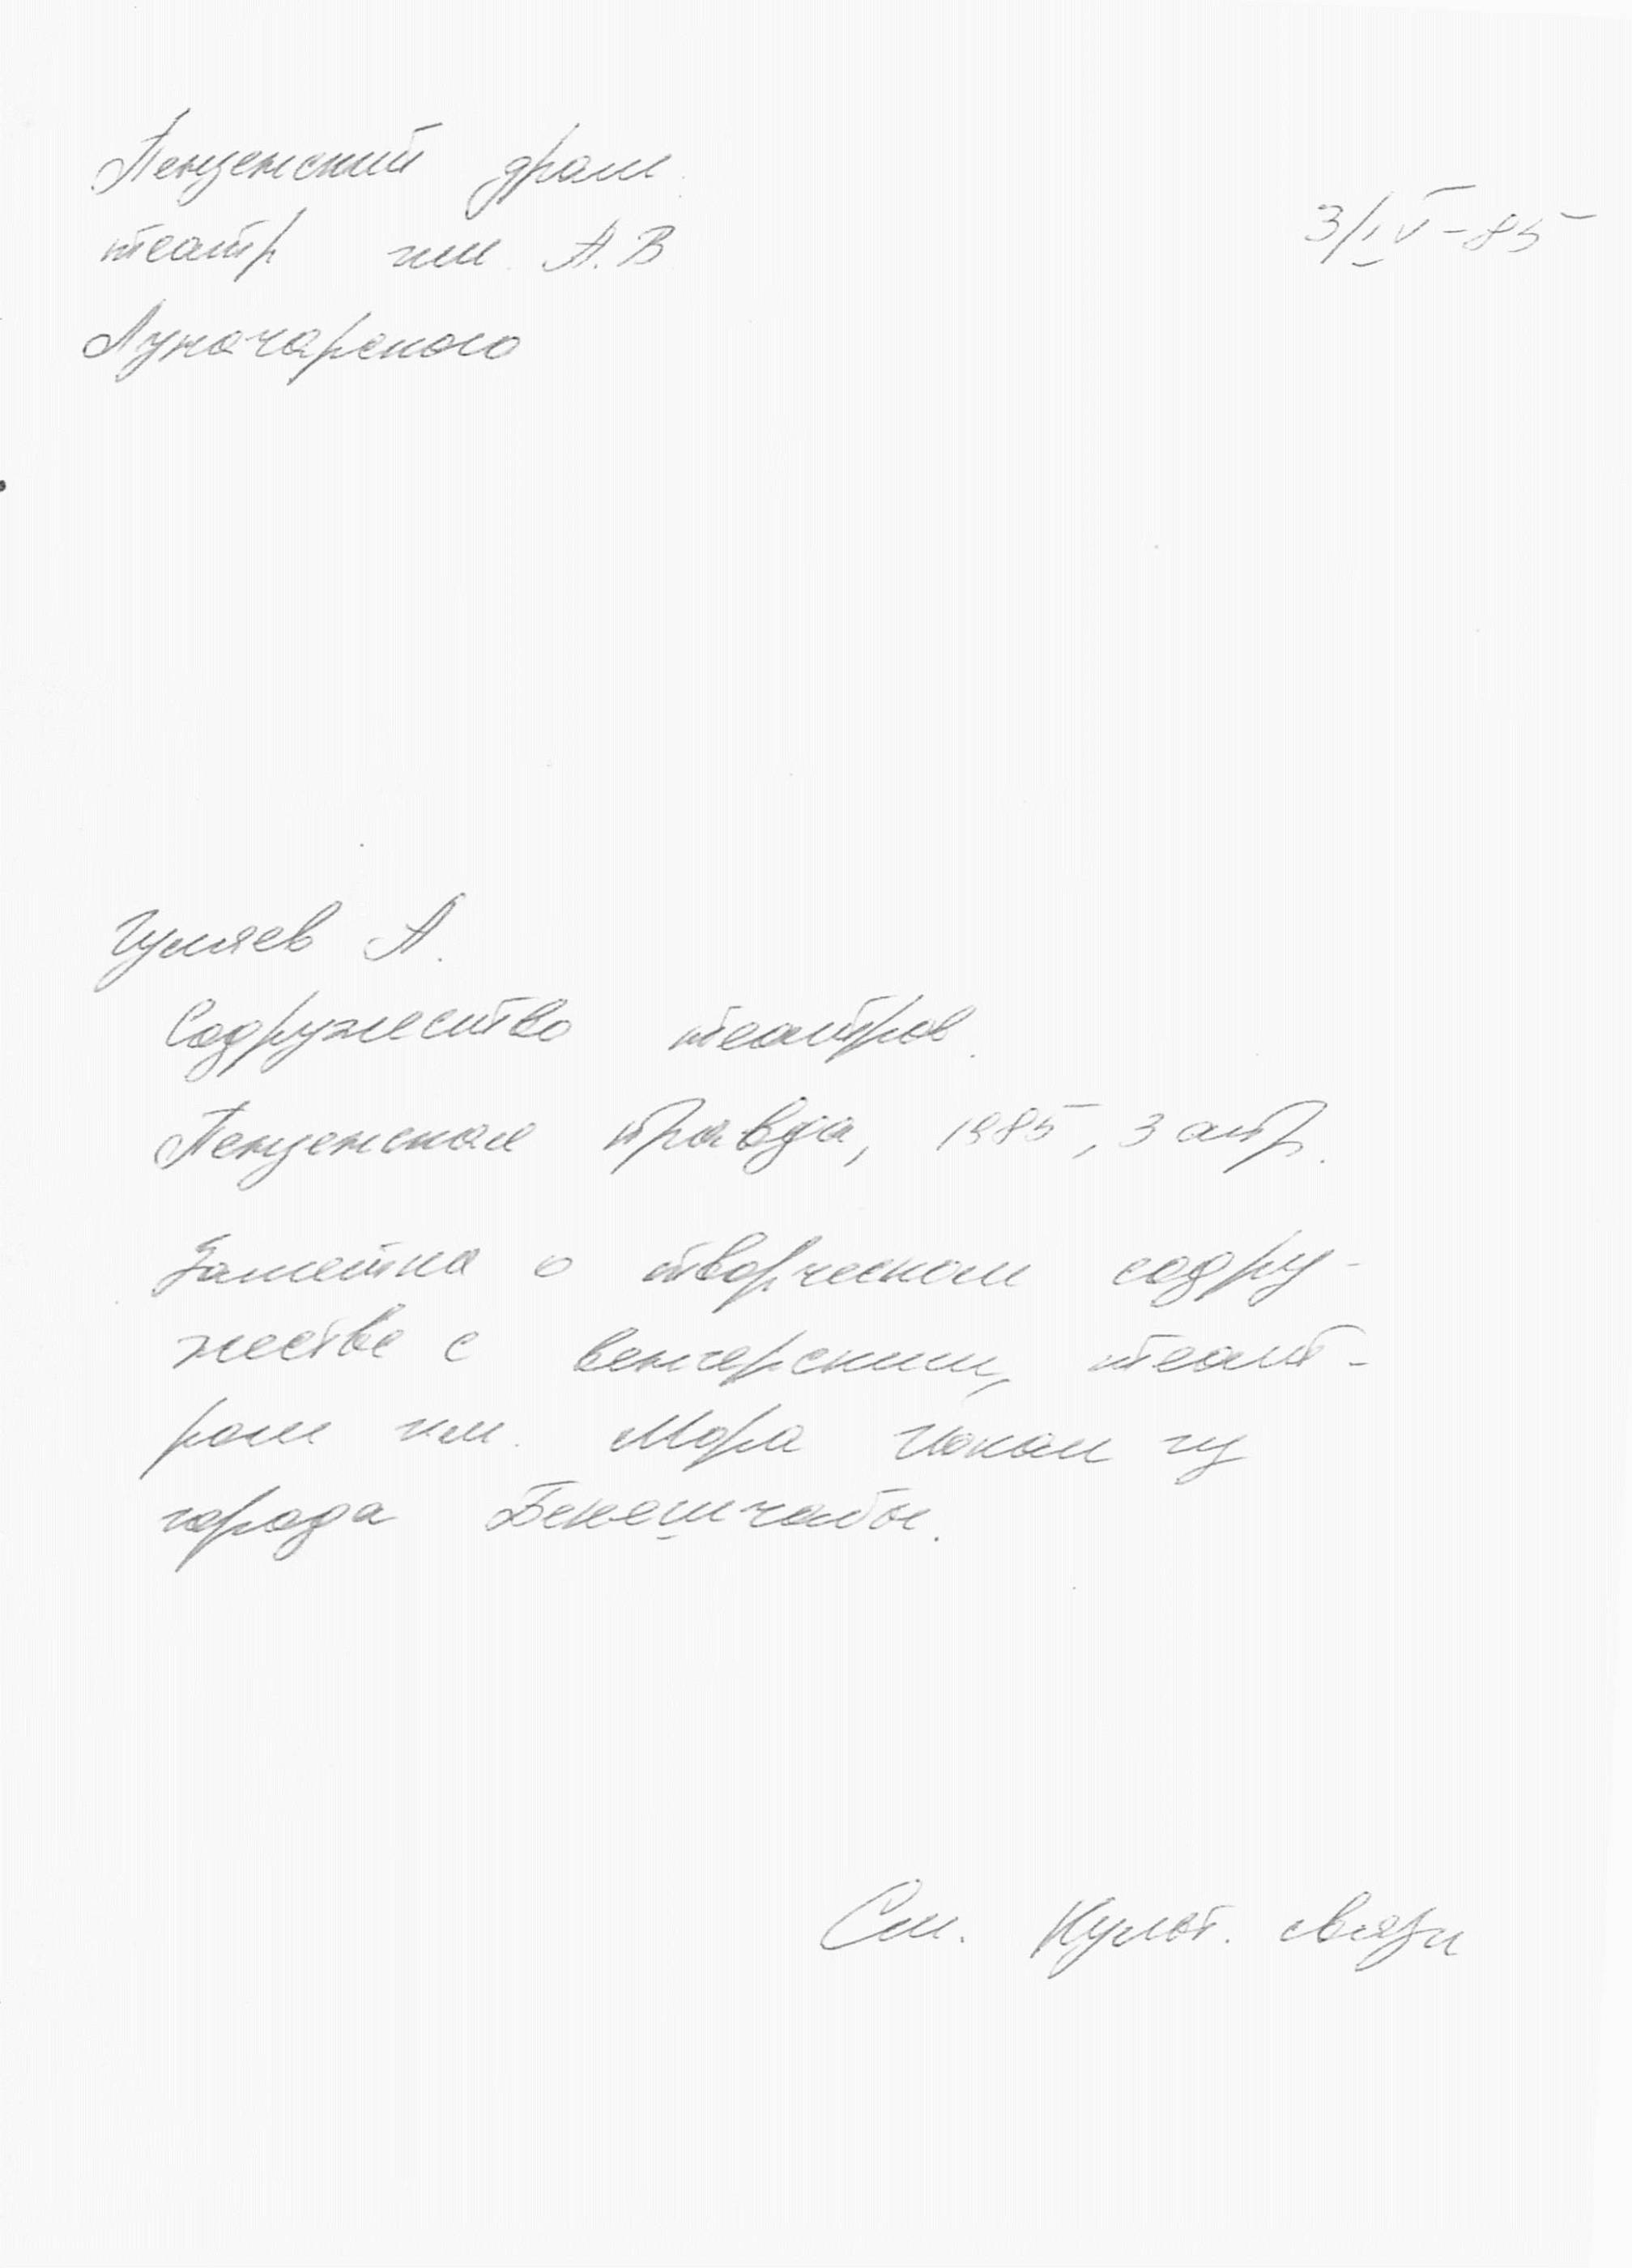 Пензенский драм.
театр им. А.В
Луначарского
3/IV-85
Гуляев А.
Содружество театров.
Пензенская правда, 1985, 3 апр.
Заметка о творческом содру-
жестве с венгерским, теат-
ром им. Мора Йокаи из
города Бекешчабы.
См. Культ. связи